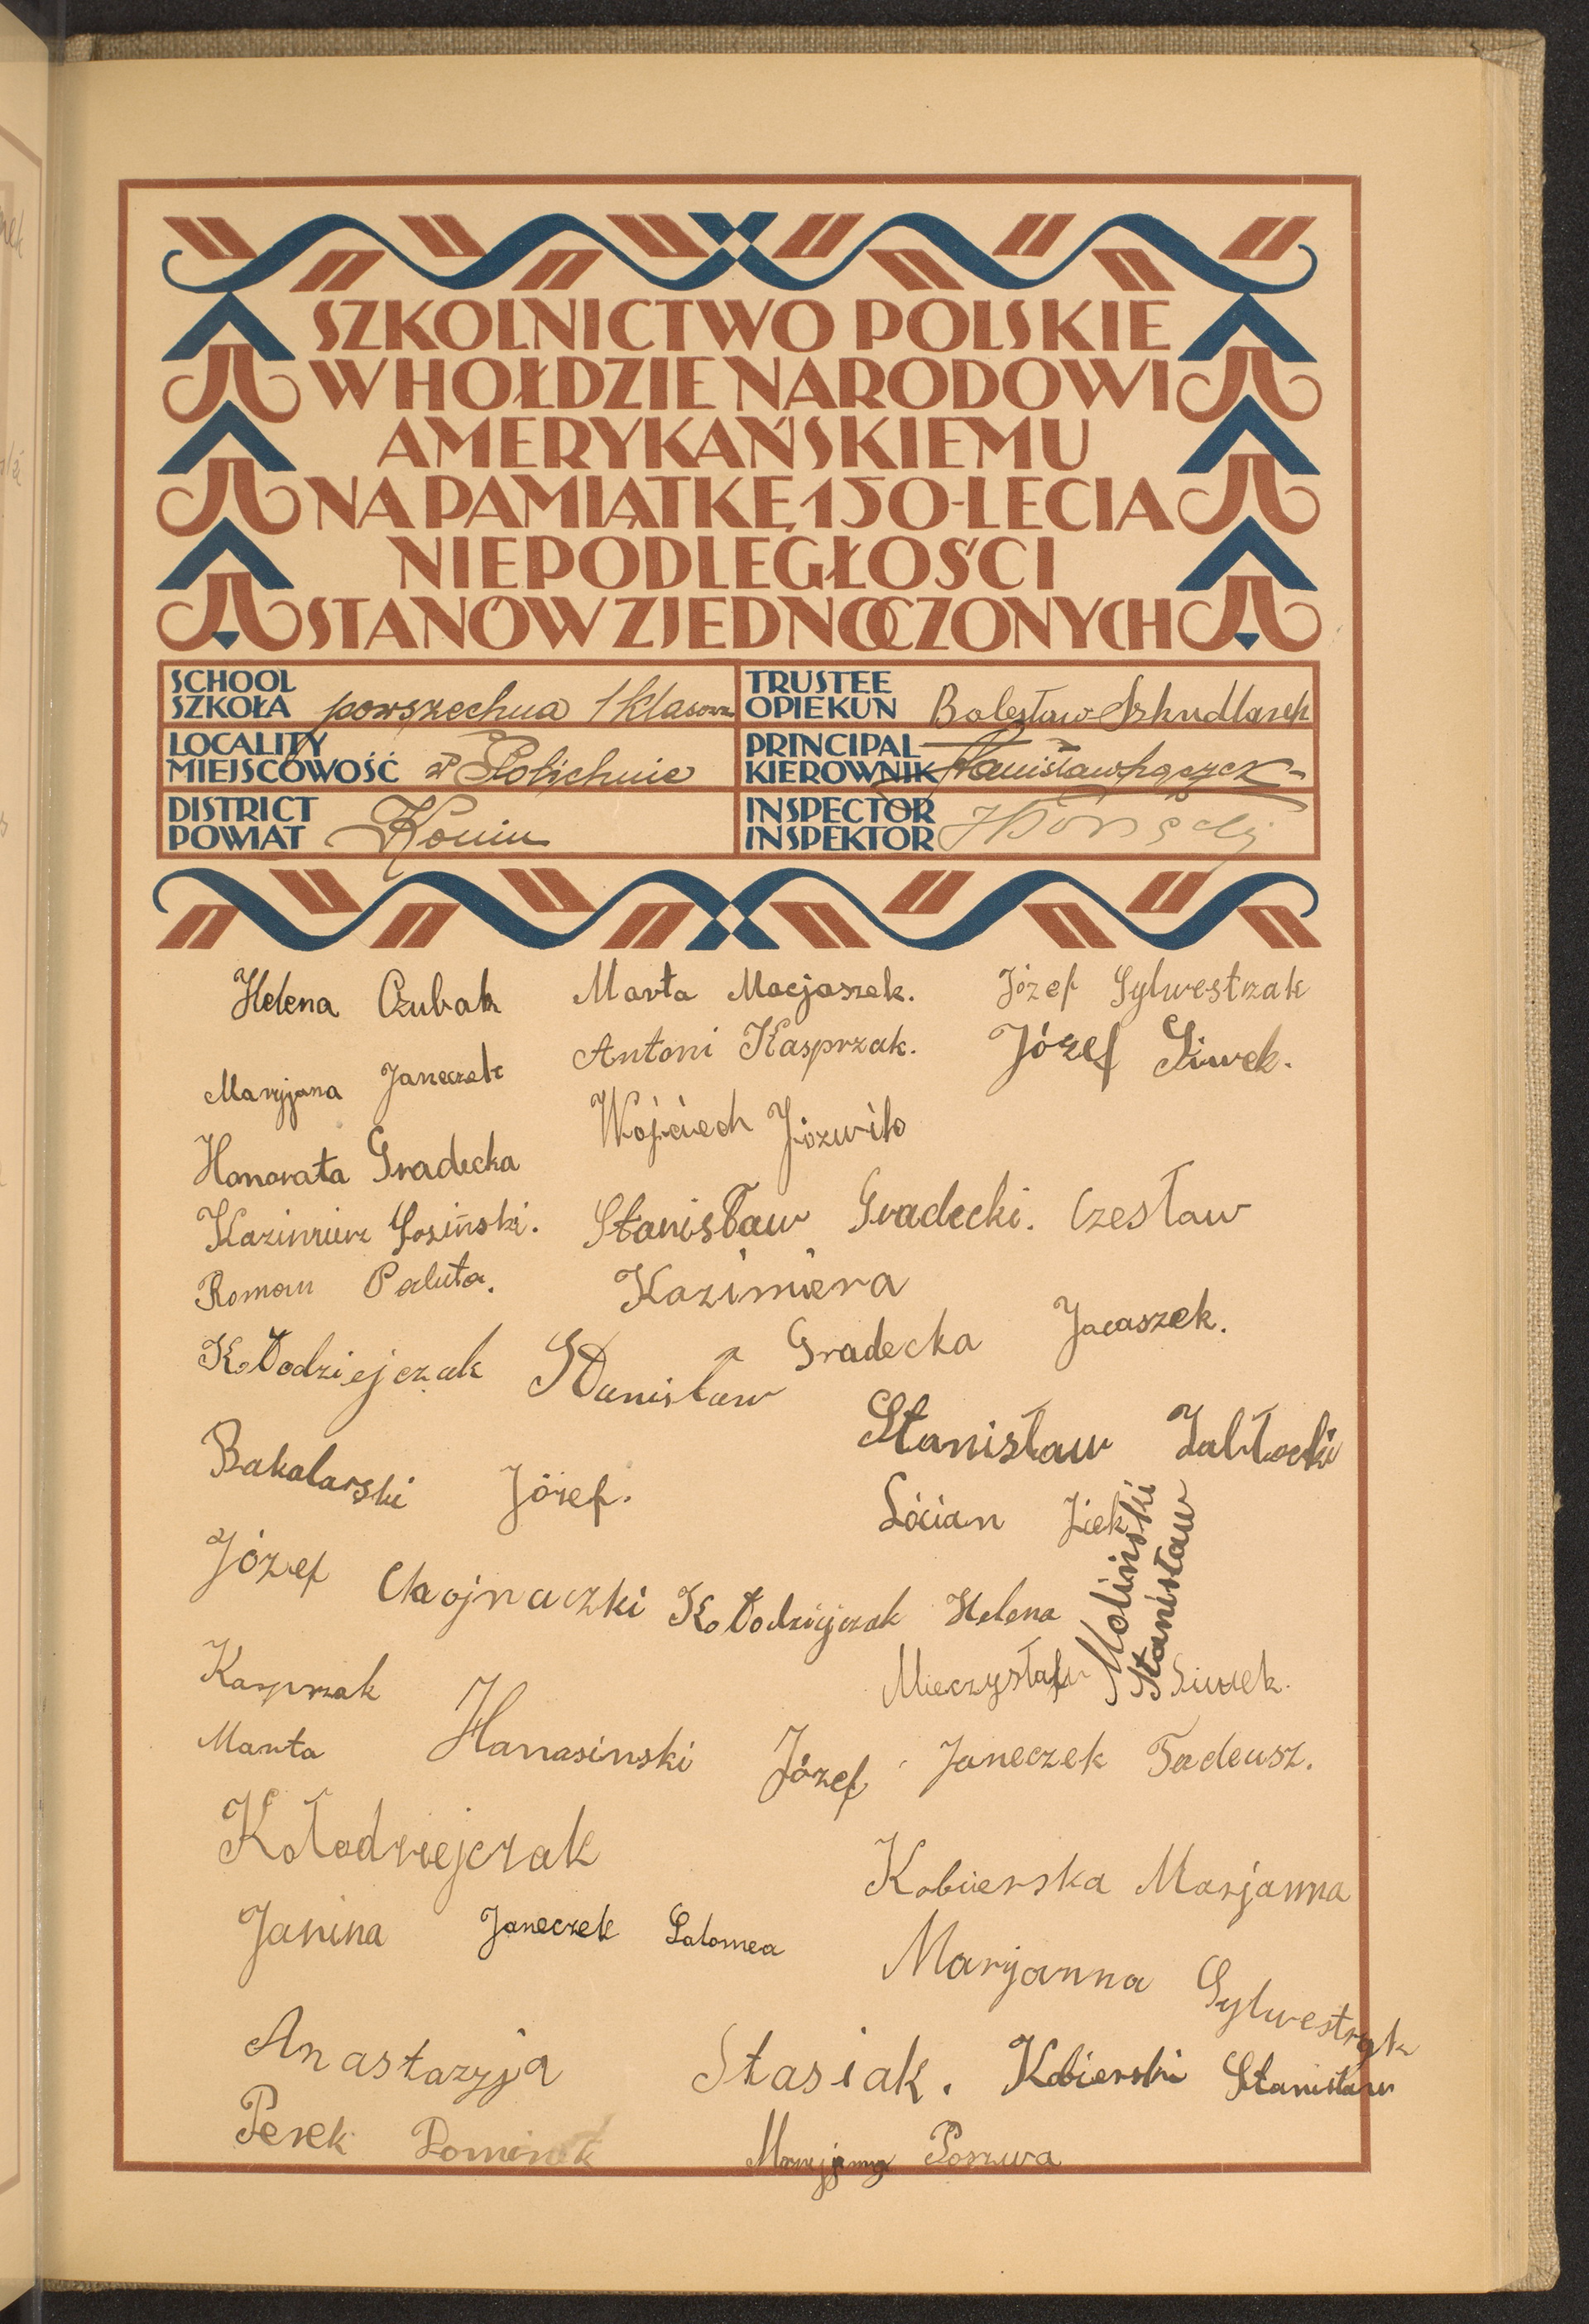 SZKOLNICTWO POLSKIE
W HOŁDZIE NARODOWI
AMERYKAŃSKIEMU
NA PAMIĄTKĘ 150-LECIA
NIEPODLEGŁOŚCI
STANÓW ZJEDNOCZONYCH
SCHOOL
SZKOŁA powszechna 1 klasowa
TRUSTEE
OPIEKUN Bolesław Szkudlarek
LOCALITY
MIEJSCOWOŚĆ w
PRINCIPAL
KIEROWNIK Stanisław
DISTRICT
POWIAT Konin
INSPECTOR
INSPEKTOR
Helena Czubak
Marta Macjaszek.
Józef Sylwestrzak
Maryjana Janeczek
Antoni Kasprzak.
Józef Siwek.
Honorata Gradecka
Wojciech
Kazimierz Łosiński.
Stanisław Gradecki. Czesław
Roman Paluta.
Kazimiera
Kołodziejczak Stanisław
Gradecka Jacaszek.
Bakalarski Józef.
Stanisław Jabłocki
Lócian
Moliński
Stanisław
Józef Chojnaczki Kołodziejczak Helena
Kasprzak
Mieczysław Siwek.
Marta Hanasinski Józef Janeczek Tadeusz.
Kołodziejczak
Kobierska Marjanna
Janina Janeczek Salomea
Maryanna Sylwestrzak
Anastazyja Stasiak. Kobierski Stanisław
Perek Dominik
Poszwa